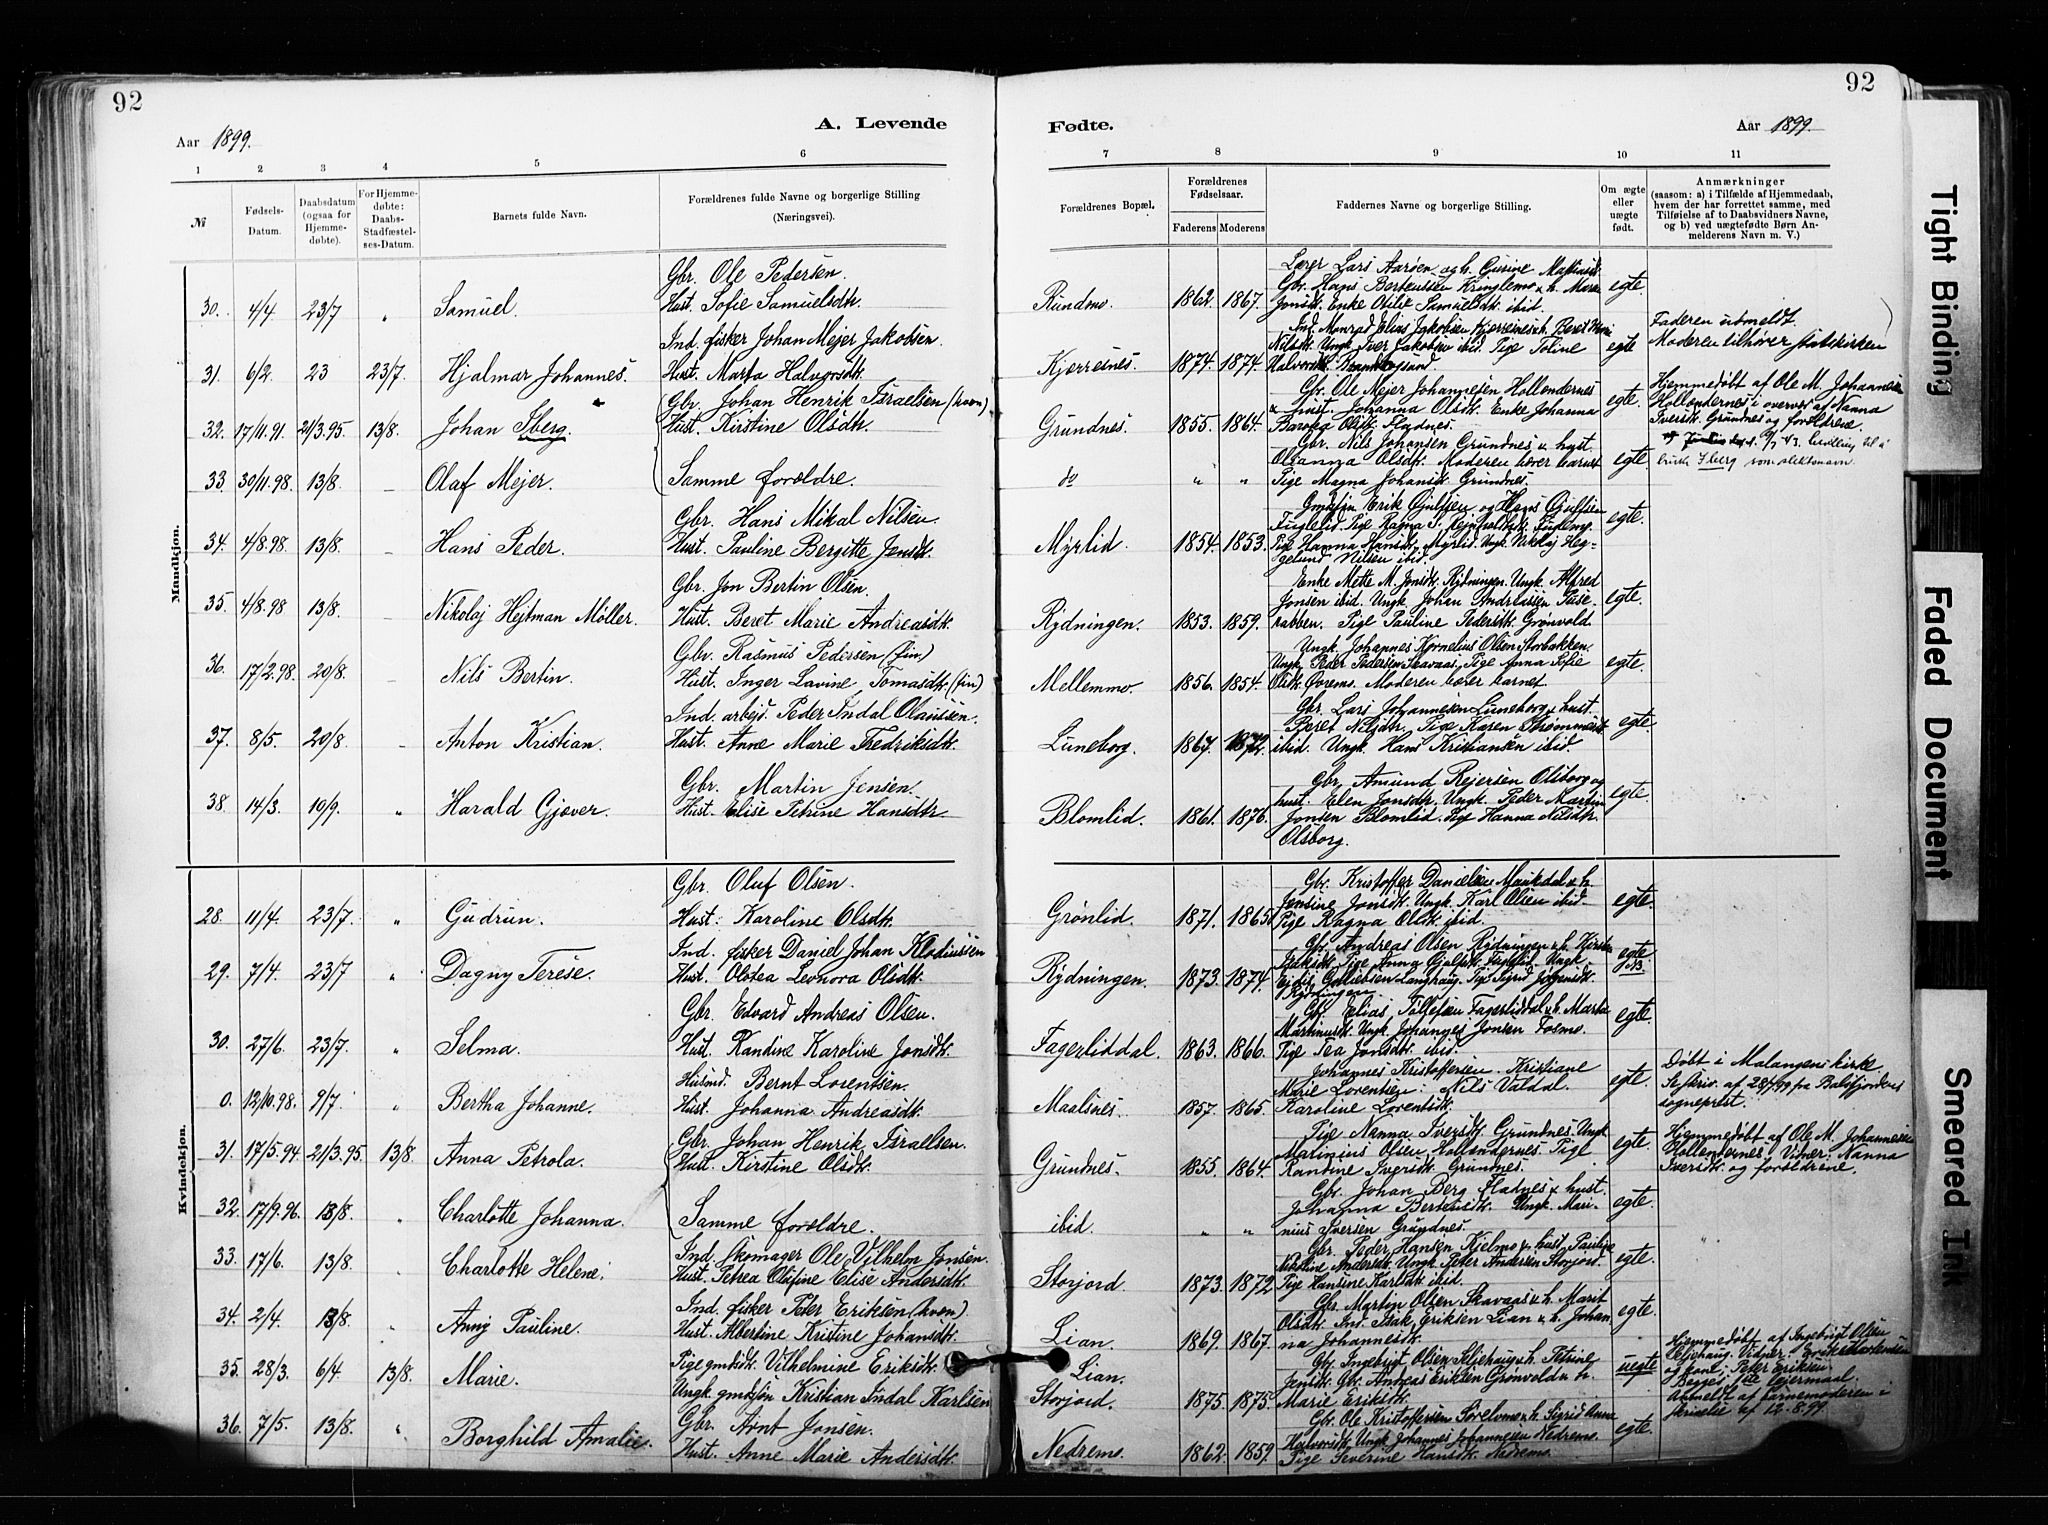 92
92
A. Levende Fødte.
Aar 1899.
Aar 1899.
1 2 3 4 5 6 7 8 9 10 11
№
Fødsels-Datum.
Daabsdatum (ogsaa for Hjemmedøbte).
For Hjemmedøbte: Daabs-Stadfæstelses-Datum.
Barnets fulde Navn.
Forældrenes fulde Navne og borgerlige Stilling (Næringsvei).
Forældrenes Bopæl.
Forældrenes Fødselsaar.
Faderens Moderens
Faddernes Navne og borgerlige Stilling.
Om ægte eller uægte født.
Anmærkninger
(saasom: a) i Tilfælde af Hjemmedaab,
hvem der har forrettet samme, med
Tilføielse af to Daabsvidners Navne,
og b) ved uægtefødte Børn Anmelderens Navn m. V.)
Mandkjøn.
30. 4/4 23/7 " Samuel.
Gbr. Ole Pedersen.
Hust. Sofie Samuelsdtr.
Rundmo. 1862. 1867.
Lærer Lars Aarøen og h. Gurine
Gbr. Hans Berteussen Kringlemo & h. Maren
Jonsdtr. Enke Otilie Samuelsdtr. ibid.
egte.
31. 6/2. 23 23/7. Hjalmar Johannes.
Ind. fisker Johan Mejer Jakobsen.
Hust. Marta Halvorsdtr.
Kjerresnes. 1874. 1874.
Elias Jakobsen Kjerresnes & h. Beret
Nilsdtr. Ungk. Iver Jakobsen ibid. Pige Toline
Halvorsdtr.
egte
Faderen udmeldt.
Moderen tilhører statskirken
32. 17/11.91. 21/3.95 13/8. Johan Iberg.
Gbr. Johan Henrik Israelsen (kvæn)
Hust. Kirstine Olsdtr.
Grundnes. 1855. 1864.
Gbr. Ole Mejer Johannesen Hollendernes
& hust. Johanna Olsdtr. Enke Johanna
Olsdtr. Sladnes.
egte.
Hjemmedøbt af Ole M. Johannesen
Hollendernes i overvær af Nanna
Iversdtr. Grundnes og forældrene.
33. 30/11.98. 13/8. Olaf Mejer.
Samme forældre.
do " "
Gbr. Nils Johansen Grundnes & hust.
Olsdtr. Moderen bærer barnet
Pige Magna Johansdtr. Grundnes.
egte
34. 4/8.98 13/8. Hans Peder.
Gbr. Hans Mikal Nilsen.
Hust. Pauline Bergitte Jensdtr.
Myrlid. 1854. 1853.
Pige Hanna Hansdtr. Myrlid. Ungk. Nikolaj Heggelund Nilsen ibid.
egte.
35. 4/8.98 13/8. Nikolaj Hejtman Møller.
Gbr. Jon Bertin Olsen.
Hust. Beret Marie Andreasdtr.
Rydningen. 1853. 1859.
Enke Mette M. Jonsdtr. Rydningen. Ungk. Alfred
Jonsen ibid. Ungk. Johan Andreassen
Pige Pauline Pedersdtr. Grønvold
egte.
36. 17/2.98. 20/8. Nils Bertin.
Gbr. Rasmus Pedersen (fin)
Hust. Inger Lavine Tomasdtr. (fin)
Mellemmo. 1856. 1854.
Ungk. Johannes Kornelius Olsen Storbakken.
Ungk. Peder Pedersen Skavaas, Pige Anna Sofie
Olsdtr. Øvremo. Moderen bærer barnet.
egte.
37. 8/5. 20/8. Anton Kristian.
Ind. arbejd. Peder Indal Olaussen.
Hust. Anne Marie Fredriksdtr.
Luneborg. 1867. 1872.
Gbr. Lars Johannesen Luneborg & hust.
Beret Nilsdtr. Pige Karen
ibid. Ungk. Hans Kristiansen ibid.
egte.
38. 14/3. 10/9. " Harald Gjæver.
Gbr. Martin Jensen.
Hust. Elise Petrine Hansdtr.
Blomlid. 1861. 1876.
Gbr. Amund Rejersen Olsborg og
hust. Elen Jonsdtr. Ungk. Peder Martin
Jonsen Blomlid. Pige Hanna Nilsdtr.
Olsborg.
egte.
Kvindekjøn.
28. 11/4. 23/7. " Gudrun.
Gbr. Oluf Olsen.
Hust. Karoline Olsdtr.
Grønlid. 1871. 1865.
Gbr. Kristoffer Danielsen Maukdal & h.
Jensine Jonsdtr. Ungk. Karl Olsen ibid.
Pige Ragna Olsdtr. ibid.
egte.
29. 7/4. 23/7 " Dagny Terese.
Ind. fisker Daniel Johan Klodiussen
Hust. Olotea Leonora Olsdtr.
Rydningen. 1873. 1874.
Gbr. Andreas Olsen Rydningen & h. Kirsten
Rydningen.
egte
30. 27/6. 23/7. " Selma.
Gbr. Edvard Andreas Olsen.
Hust. Randine Karoline Jonsdtr.
Fagerliddal. 1863. 1866.
Gbr. Elias Tollefsen Fagerliddal & h. Marta
Martinusdtr. Ungk. Johannes Jonsen Fosmo.
Pige Tea Jonsdtr. ibid.
egte.
0. 12/10.98. 9/7. " Bertha Johanne.
Husmd. Bernt Lorentsen.
Hust. Johanna Andreasdtr.
Maalsnes. 1857. 1865.
Johannes Kristoffersen. Kristiane
Marie Lorentsen. Nils Valdal.
Karoline Lorentsdtr.
egte.
Døbt i Malangens kirke.
Se skriv. af 28/7 99 fra Balsfjordens
sogneprest.
31. 17/5.94 21/3.95. 13/8. Anna Petrola.
Gbr. Johan Henrik Israelsen.
Hust. Kirstine Olsdtr.
Grundnes. 1855. 1864.
Pige Nanna Iversdtr. Grundnes. Ungk.
Marinius Olsen Hollendernes. Pige
Randine Iversdtr. Grundnes.
egte.
Hjemmedøbt af Ole M. Johannesen
Hollendernes. Vidner: Nanna
Iversdtr. og forældrene.
32. 17/9.96. 13/8. " Charlotte Johanna.
Samme forældre.
ibid. " "
Gbr. Johan Berg Sladnes & hust.
Johanna Ungk. Marinius Iversen Grundnes.
egte.
33. 17/6. 13/8. Charlotte Helene.
Ind. skomager Ole Vilhelm Jensen.
Hust. Petrea Olufine Elise Andersdtr.
Storjord. 1873. 1872
Gbr. Peder Hansen Kjelmo & hust. Pauline
Nikoline Andersdtr. Ungk. Peter Andersen Storjord.
Pige Hansine Karlsdtr. ibid.
egte.
34. 2/4. 13/8. " Anny Pauline.
Ind. fisker Peter Eriksen (kvæn)
Hust. Albertine Kristine Johansdtr.
Lian. 1869. 1867.
Gbr. Martin Olsen Skavaas & h. Marit
Olsdtr. Ind. Isak Eriksen Lian & h. Johanna Johannesdtr.
egte.
35. 28/3. 6/4 13/8. Marie.
Pige gmdsdtr. Vilhelmine Eriksdtr.
Ungk. gmdsøn Kristian Indal Karlsen
Lian.
Storjord. 1875. 1875.
Gbr. Ingebrigt Olsen Seljehaug & h. Petrine
Jensdtr. Gbr. Andreas Eriksen Grønvold & h.
Marie Eriksdtr.
uegte
Hjemmedøbt af Ingebrigt Olsen
Seljehaug. Vidner:
og gmd. Peter Eriksen.
Begges 1ste leiermaal.
Anmeldt af barnemoderen i
skrivelse af 12-8.99.
36. 7/5. 13/8. " Borghild Amalie.
Gbr. Arnt Jonsen.
Hust. Anne Marie Andersdtr.
Nedremo. 1862. 1859.
Gbr. Ole Kristoffersen & h. Sigrid Anna
Halvorsdtr. Ungk. Johannes Johannesen Nedremo.
Pige Severine Hansdtr. Nedremo.
egte.
Tight Binding
Faded Document
Smeared Ink